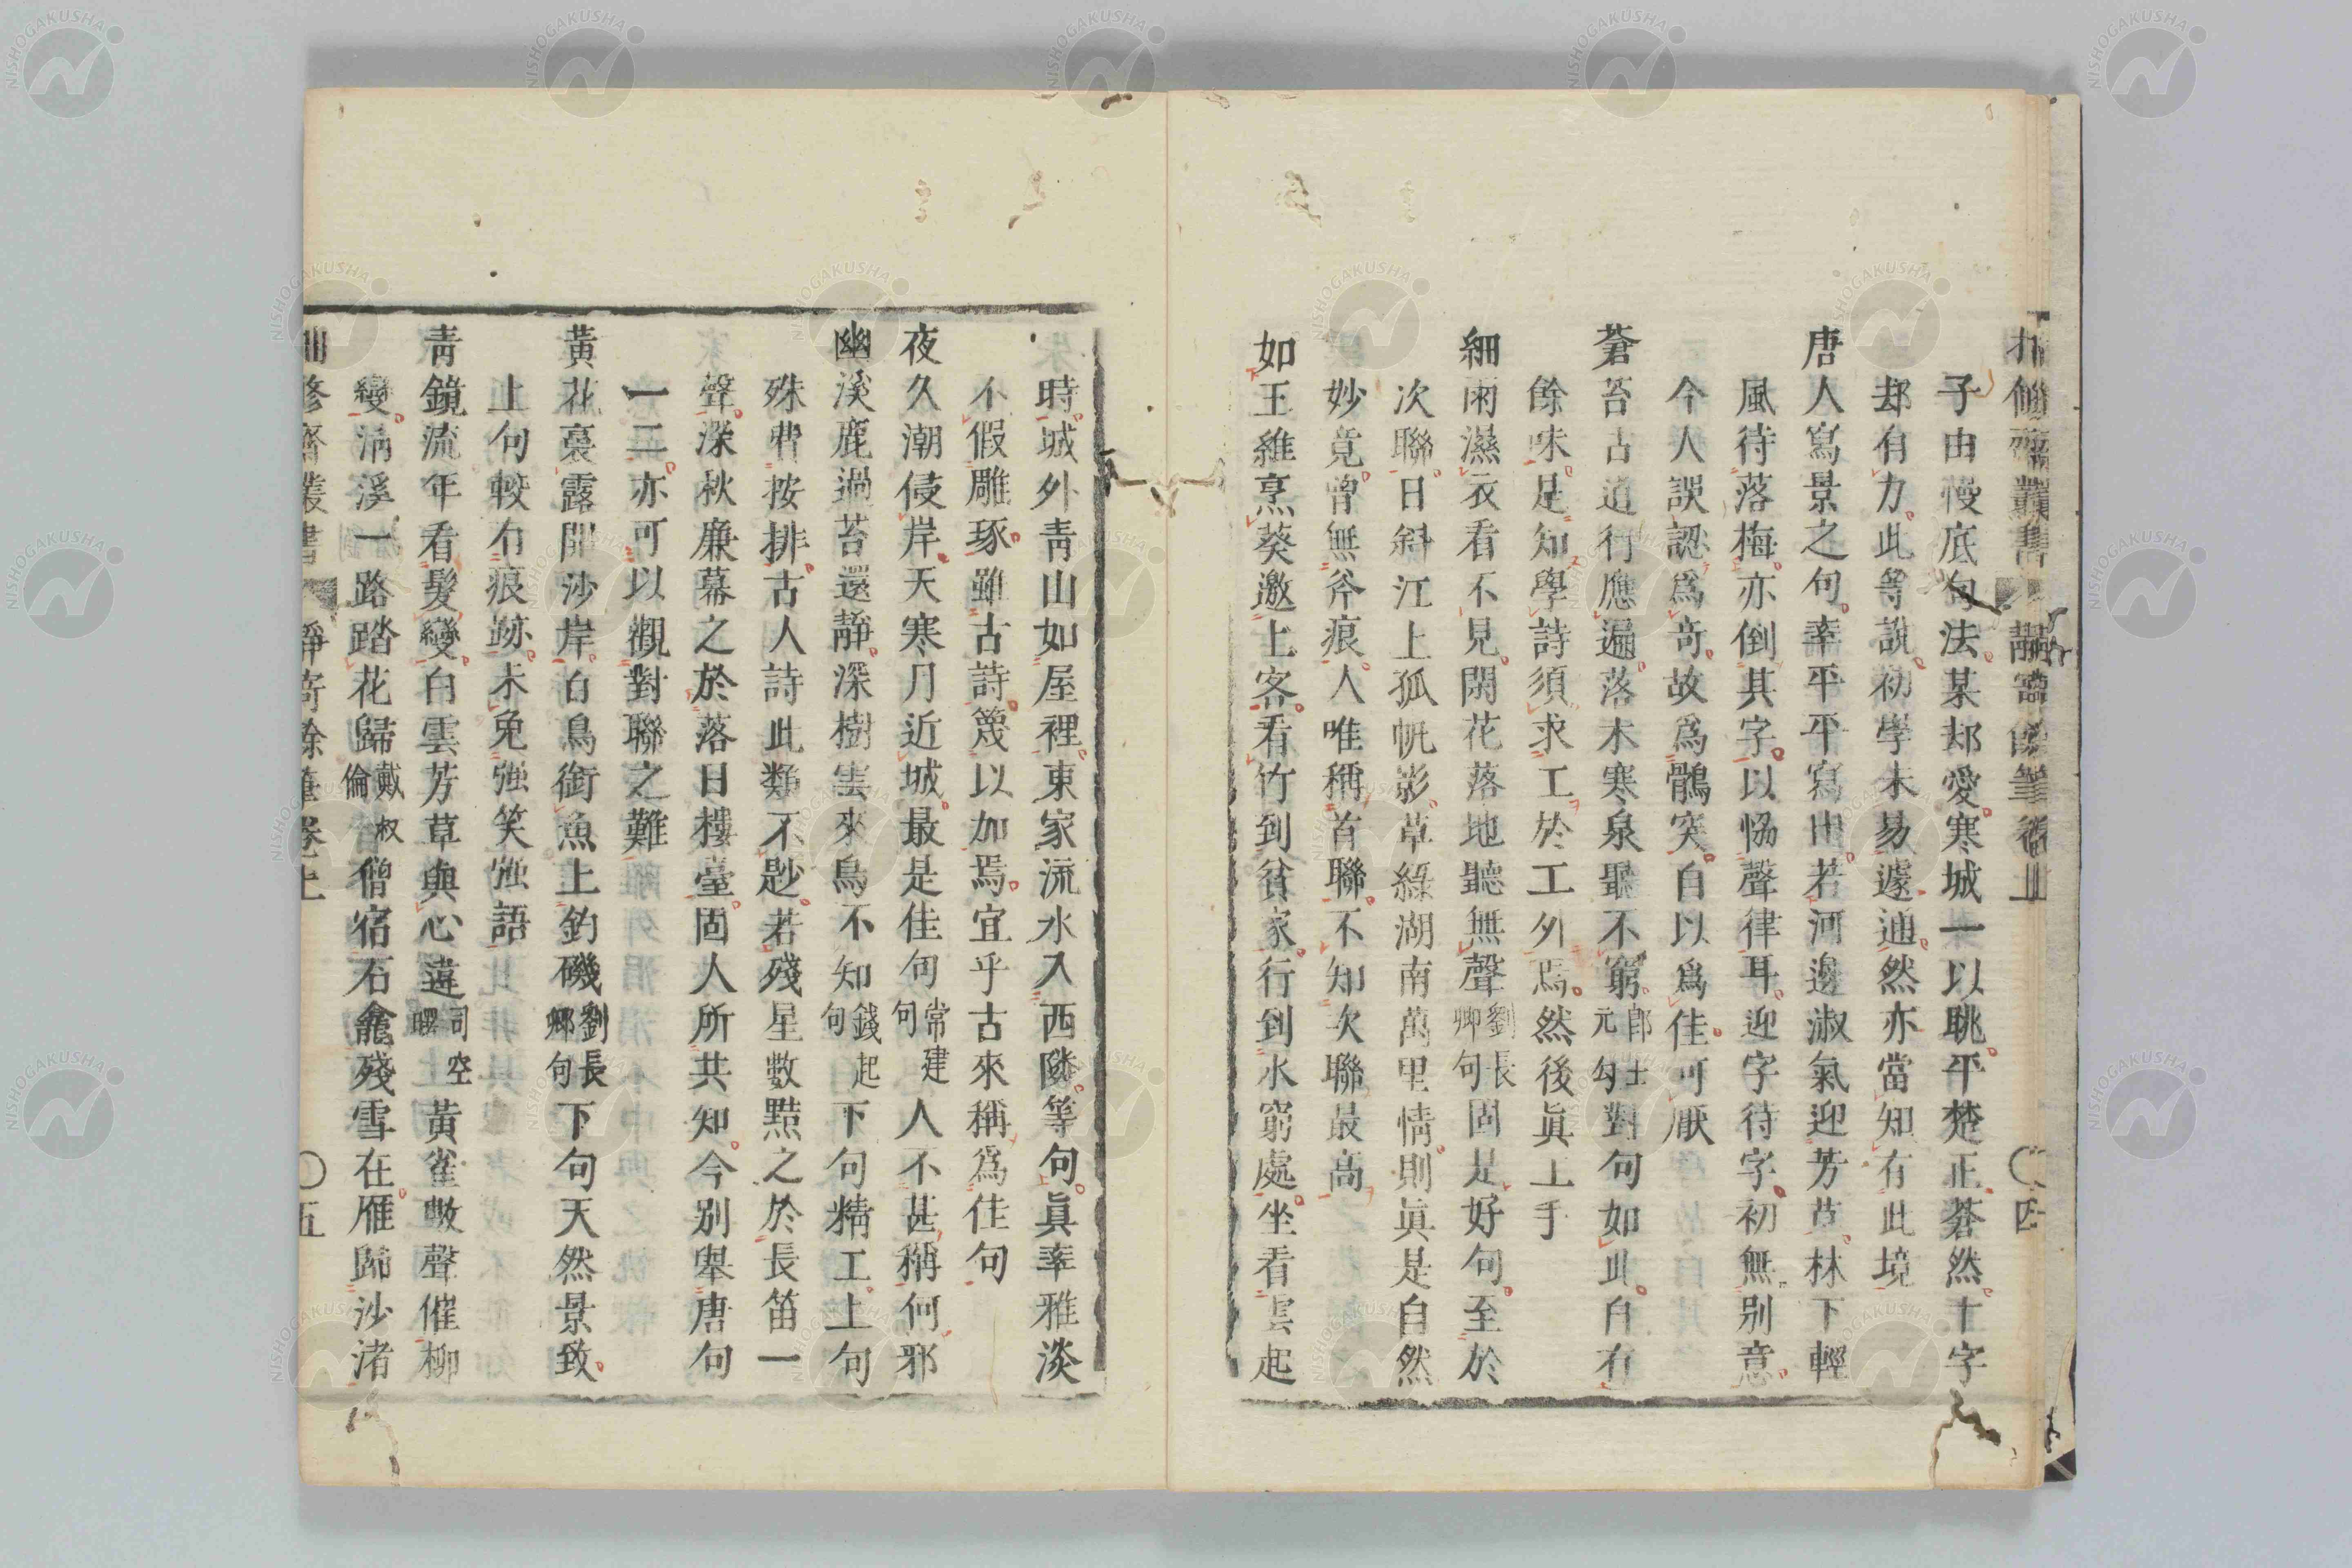 子由慢底句法某却愛寒城一以眺平楚正蒼然十字
却有力此等說初學未易遽通然亦當知有此境
唐人寫景之句率平平寫出若河邊淑氣迎芳草林下輕
風待落梅亦倒其字以恊聲律耳迎字待字初無別意
今人誤認爲奇故爲鶻突自以爲佳可厭
蒼苔古道行應遍落木寒泉聽不窮郎士元句對句如此自有
餘味是知學詩須求工於工外焉然後眞上手
細雨濕衣看不見閑花落地聽無聲劉長卿句固是好句至於
次聯日斜江上孤帆影草綠湖南萬里情則眞是自然
妙竟曾無斧痕人唯稱首聯不知次聯最高
如王維烹葵邀上客看竹到貧家行到水窮處坐看雲起
時城外青山如屋裡東家流水入西隣等句眞率雅淡
不假雕琢雖古詩篾以加焉宜乎古來稱爲佳句
夜久潮侵岸天寒月近城最是佳句常建句人不甚稱何邪
幽溪鹿過苔還靜深樹雲來鳥不知錢起句下句精工上句
殊費按排古人詩此類不尠若殘星數㸃之於長笛一
聲深秋廉幕之於落日樓臺固人所共知今别舉唐句
一二亦可以觀對聯之難
黃花裛露開沙岸白鳥銜魚上釣磯劉長卿句下句天然景致
上句較有痕跡未免强笑强語
靑鏡流年看髮變白雲芳草與心違司空曙黃雀數聲催柳
變淸溪一路踏花歸戴叔倫僧宿石龕殘雪在雁歸沙渚
修齋叢書 靜寄餘筆卷上 〇五